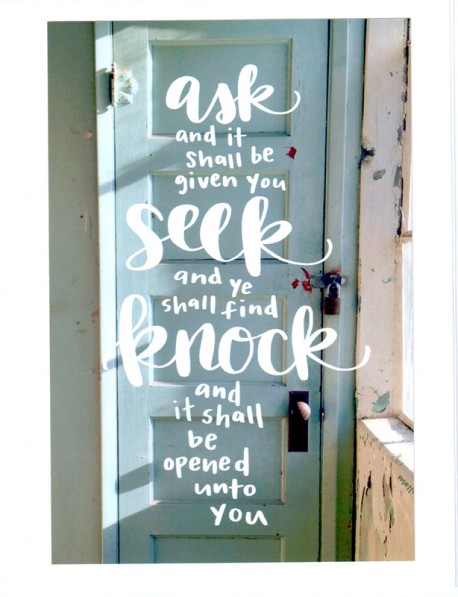 ask
and it
shall be
given you
seek
and ye
shall find
knock
and
it shall
be
opened
unto
you